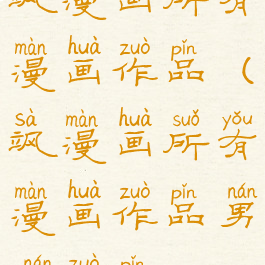 飒漫画所有
màn huà zuò pǐn
漫画作品（
sà màn huà suǒ yǒu
飒漫画所有
màn huà zuò pǐn nán
漫画作品男
nán zuò pǐn